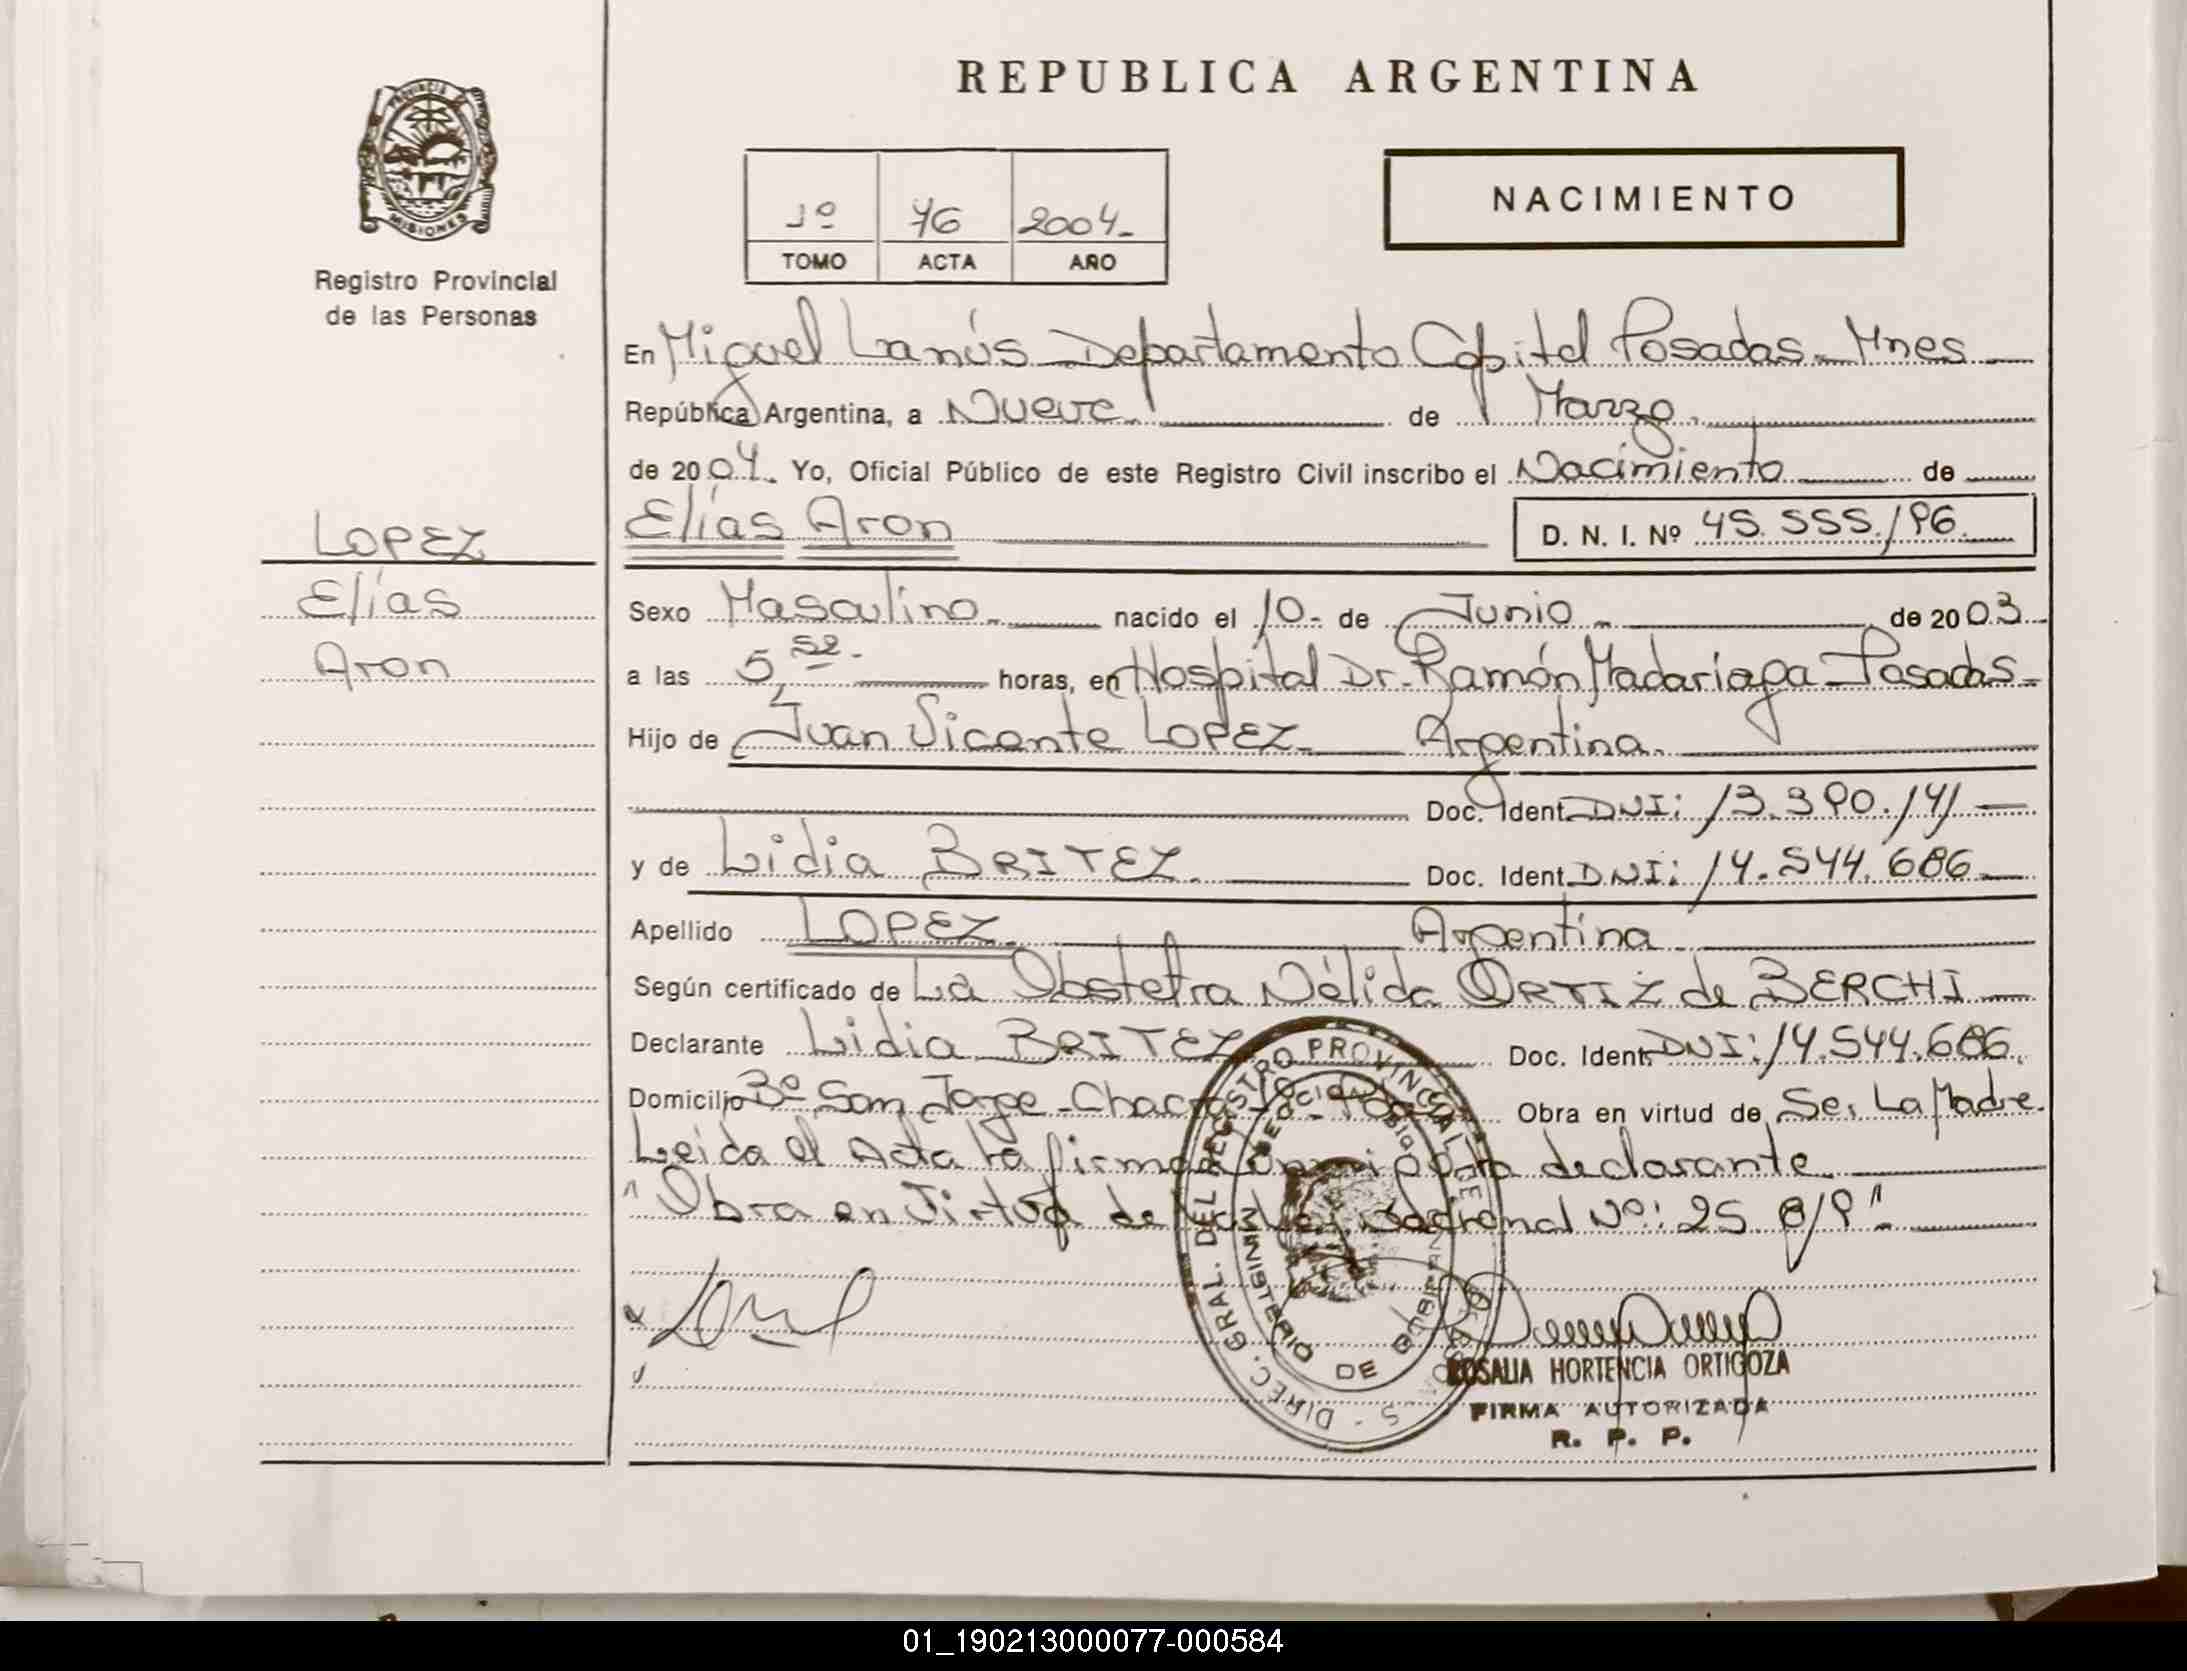 REPUBLICA ARGENTINA
NACIMIENTO
PROVINCIA
MISIONES
Registro Provincial
de las Personas
1º 76 2004-
TOMO ACTA AÑO
En Miguel Lanús - Departamento Capital Posadas - Mnes
República Argentina, a Nueve de Marzo
de 2004. Yo, Oficial Público de este Registro Civil inscribo el Nacimiento de
Elías Aron D. N. I. Nº 45.555.196.
LOPEZ
Elías
Aron
Sexo Masculino nacido el 10 - de Junio de 2003
a las 5, horas, en Hospital Dr. Ramón Madariaga - Posadas -
Hijo de Juan Vicente LOPEZ - Argentina.
Doc. Ident. DNI: 13.390.141
y de Lidia BRITEZ. Doc. Ident. DNI: 14.544.686
Apellido LOPEZ. Argentina
Según certificado de La Obstetra Nélida ORTIZ de BERCHI
Declarante Lidia BRITEZ Doc. Ident. DNI: 14.544.686.
Domicilio Bº San Jorge - Chacra Obra en virtud de Ser La Madre.
Leída el Acta la firma declarante
"Obra en Virtud de la Ley Nacional Nº: 25.819"
DIREC. GRAL. DEL REGISTRO PROVINCIAL DE
MINISTERIO DE GOBIERNO
ROSALIA HORTENCIA ORTIGOZA
FIRMA AUTORIZADA
R. P. P.
01_190213000077-000584